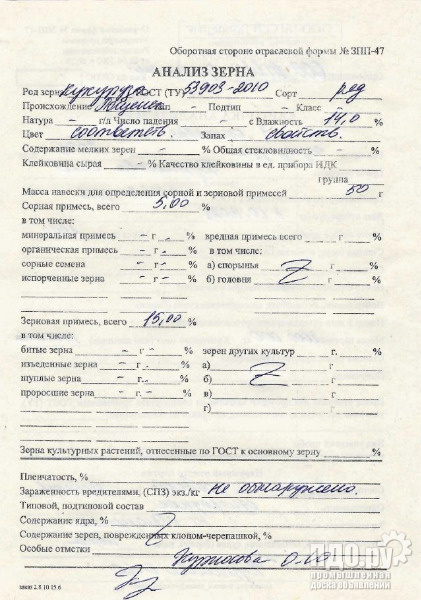 Оборотная сторона отраслевой формы № ЗПП-47
АНАЛИЗ ЗЕРНА
Род зерна кукуруза ГОСТ (ТУ) 53903-2010 Сорт ряд
Происхождение Тип – Подтип – Класс –
Натура – г/л Число падения – с Влажность 14,0 %
Цвет соответств. Запах свойств.
Содержание мелких зерен – % Общая стекловидность – %
Клейковина сырая – % Качество клейковины в ед. прибора ИДК
группа
Масса навески для определения сорной и зерновой примесей 50 г
Сорная примесь, всего 5,00 %
в том числе:
минеральная примесь – г – % вредная примесь всего г %
органическая примесь – г – % в том числе:
сорные семена – г – % а) спорынья г %
испорченные зерна – г – % б) головня г %
г % г %
г % г %
Зерновая примесь, всего 15,00 %
в том числе:
битые зерна – г – % зерен других культур г. %
изъеденные зерна – г – % а) г %
щуплые зерна – г – % б) г %
проросшие зерна – г – % в) г %
г) г %
Зерна культурных растений, отнесенные по ГОСТ к основному зерну %
Пленчатость, %
Зараженность вредителями, (СПЗ) экз./кг не обнаружено.
Типовой, подтиповой состав
Содержание ядра, %
Содержание зерен, поврежденных клопом-черепашкой, %
Особые отметки
ИДО.ру
ПРОМЫШЛЕННАЯ
ДОСКА ОБЪЯВЛЕНИЙ